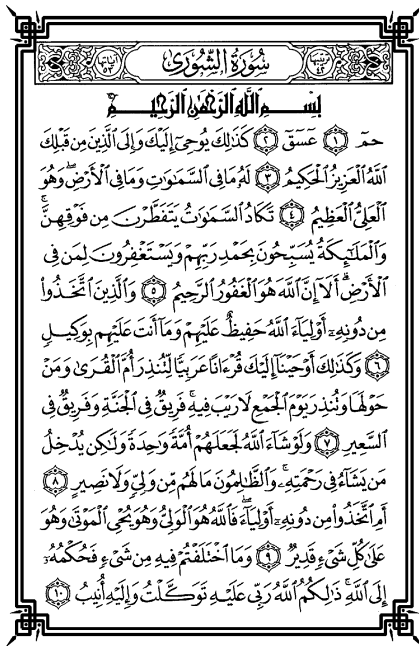 ترتيبها ٤٢ سُورَةُ الشُّورَىٰ آياتها ٥٣
بِسْمِ اللَّهِ الرَّحْمَٰنِ الرَّحِيمِ
حمٓ ۝١ عٓسٓقٓ ۝٢ كَذَٰلِكَ يُوحِىٓ إِلَيْكَ وَإِلَى ٱلَّذِينَ مِن قَبْلِكَ
ٱللَّهُ ٱلْعَزِيزُ ٱلْحَكِيمُ ۝٣ لَهُۥ مَا فِى ٱلسَّمَٰوَٰتِ وَمَا فِى ٱلْأَرْضِ ۖ وَهُوَ
ٱلْعَلِىُّ ٱلْعَظِيمُ ۝٤ تَكَادُ ٱلسَّمَٰوَٰتُ يَتَفَطَّرْنَ مِن فَوْقِهِنَّ ۚ
وَٱلْمَلَٰٓئِكَةُ يُسَبِّحُونَ بِحَمْدِ رَبِّهِمْ وَيَسْتَغْفِرُونَ لِمَن فِى
ٱلْأَرْضِ ۗ أَلَآ إِنَّ ٱللَّهَ هُوَ ٱلْغَفُورُ ٱلرَّحِيمُ ۝٥ وَٱلَّذِينَ ٱتَّخَذُوا۟
مِن دُونِهِۦٓ أَوْلِيَآءَ ٱللَّهُ حَفِيظٌ عَلَيْهِمْ وَمَآ أَنتَ عَلَيْهِم بِوَكِيلٍ
۝٦ وَكَذَٰلِكَ أَوْحَيْنَآ إِلَيْكَ قُرْءَانًا عَرَبِيًّا لِّتُنذِرَ أُمَّ ٱلْقُرَىٰ وَمَنْ
حَوْلَهَا وَتُنذِرَ يَوْمَ ٱلْجَمْعِ لَا رَيْبَ فِيهِ ۚ فَرِيقٌ فِى ٱلْجَنَّةِ وَفَرِيقٌ فِى
ٱلسَّعِيرِ ۝٧ وَلَوْ شَآءَ ٱللَّهُ لَجَعَلَهُمْ أُمَّةً وَٰحِدَةً وَلَٰكِن يُدْخِلُ
مَن يَشَآءُ فِى رَحْمَتِهِۦ ۚ وَٱلظَّٰلِمُونَ مَا لَهُم مِّن وَلِىٍّ وَلَا نَصِيرٍ ۝٨
أَمِ ٱتَّخَذُوا۟ مِن دُونِهِۦٓ أَوْلِيَآءَ ۖ فَٱللَّهُ هُوَ ٱلْوَلِىُّ وَهُوَ يُحْىِ ٱلْمَوْتَىٰ وَهُوَ
عَلَىٰ كُلِّ شَىْءٍ قَدِيرٌ ۝٩ وَمَا ٱخْتَلَفْتُمْ فِيهِ مِن شَىْءٍ فَحُكْمُهُۥٓ
إِلَى ٱللَّهِ ۚ ذَٰلِكُمُ ٱللَّهُ رَبِّى عَلَيْهِ تَوَكَّلْتُ وَإِلَيْهِ أُنِيبُ ۝١٠